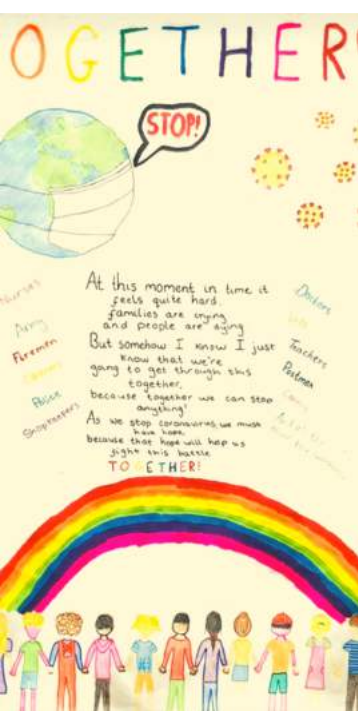 TOGETHER!
STOP!
Nurses
Army
Firemen
Police
Shopkeepers
At this moment in time it
feels quite hard.
families are crying
and people are dying
But somehow I know I just
know that we're
going to get through this
together,
because together we can stop
anything!
As we stop coronavirus, we must
have hope,
because that hope will help us
fight this battle
TOGETHER!
Doctors
Teachers
Postmen